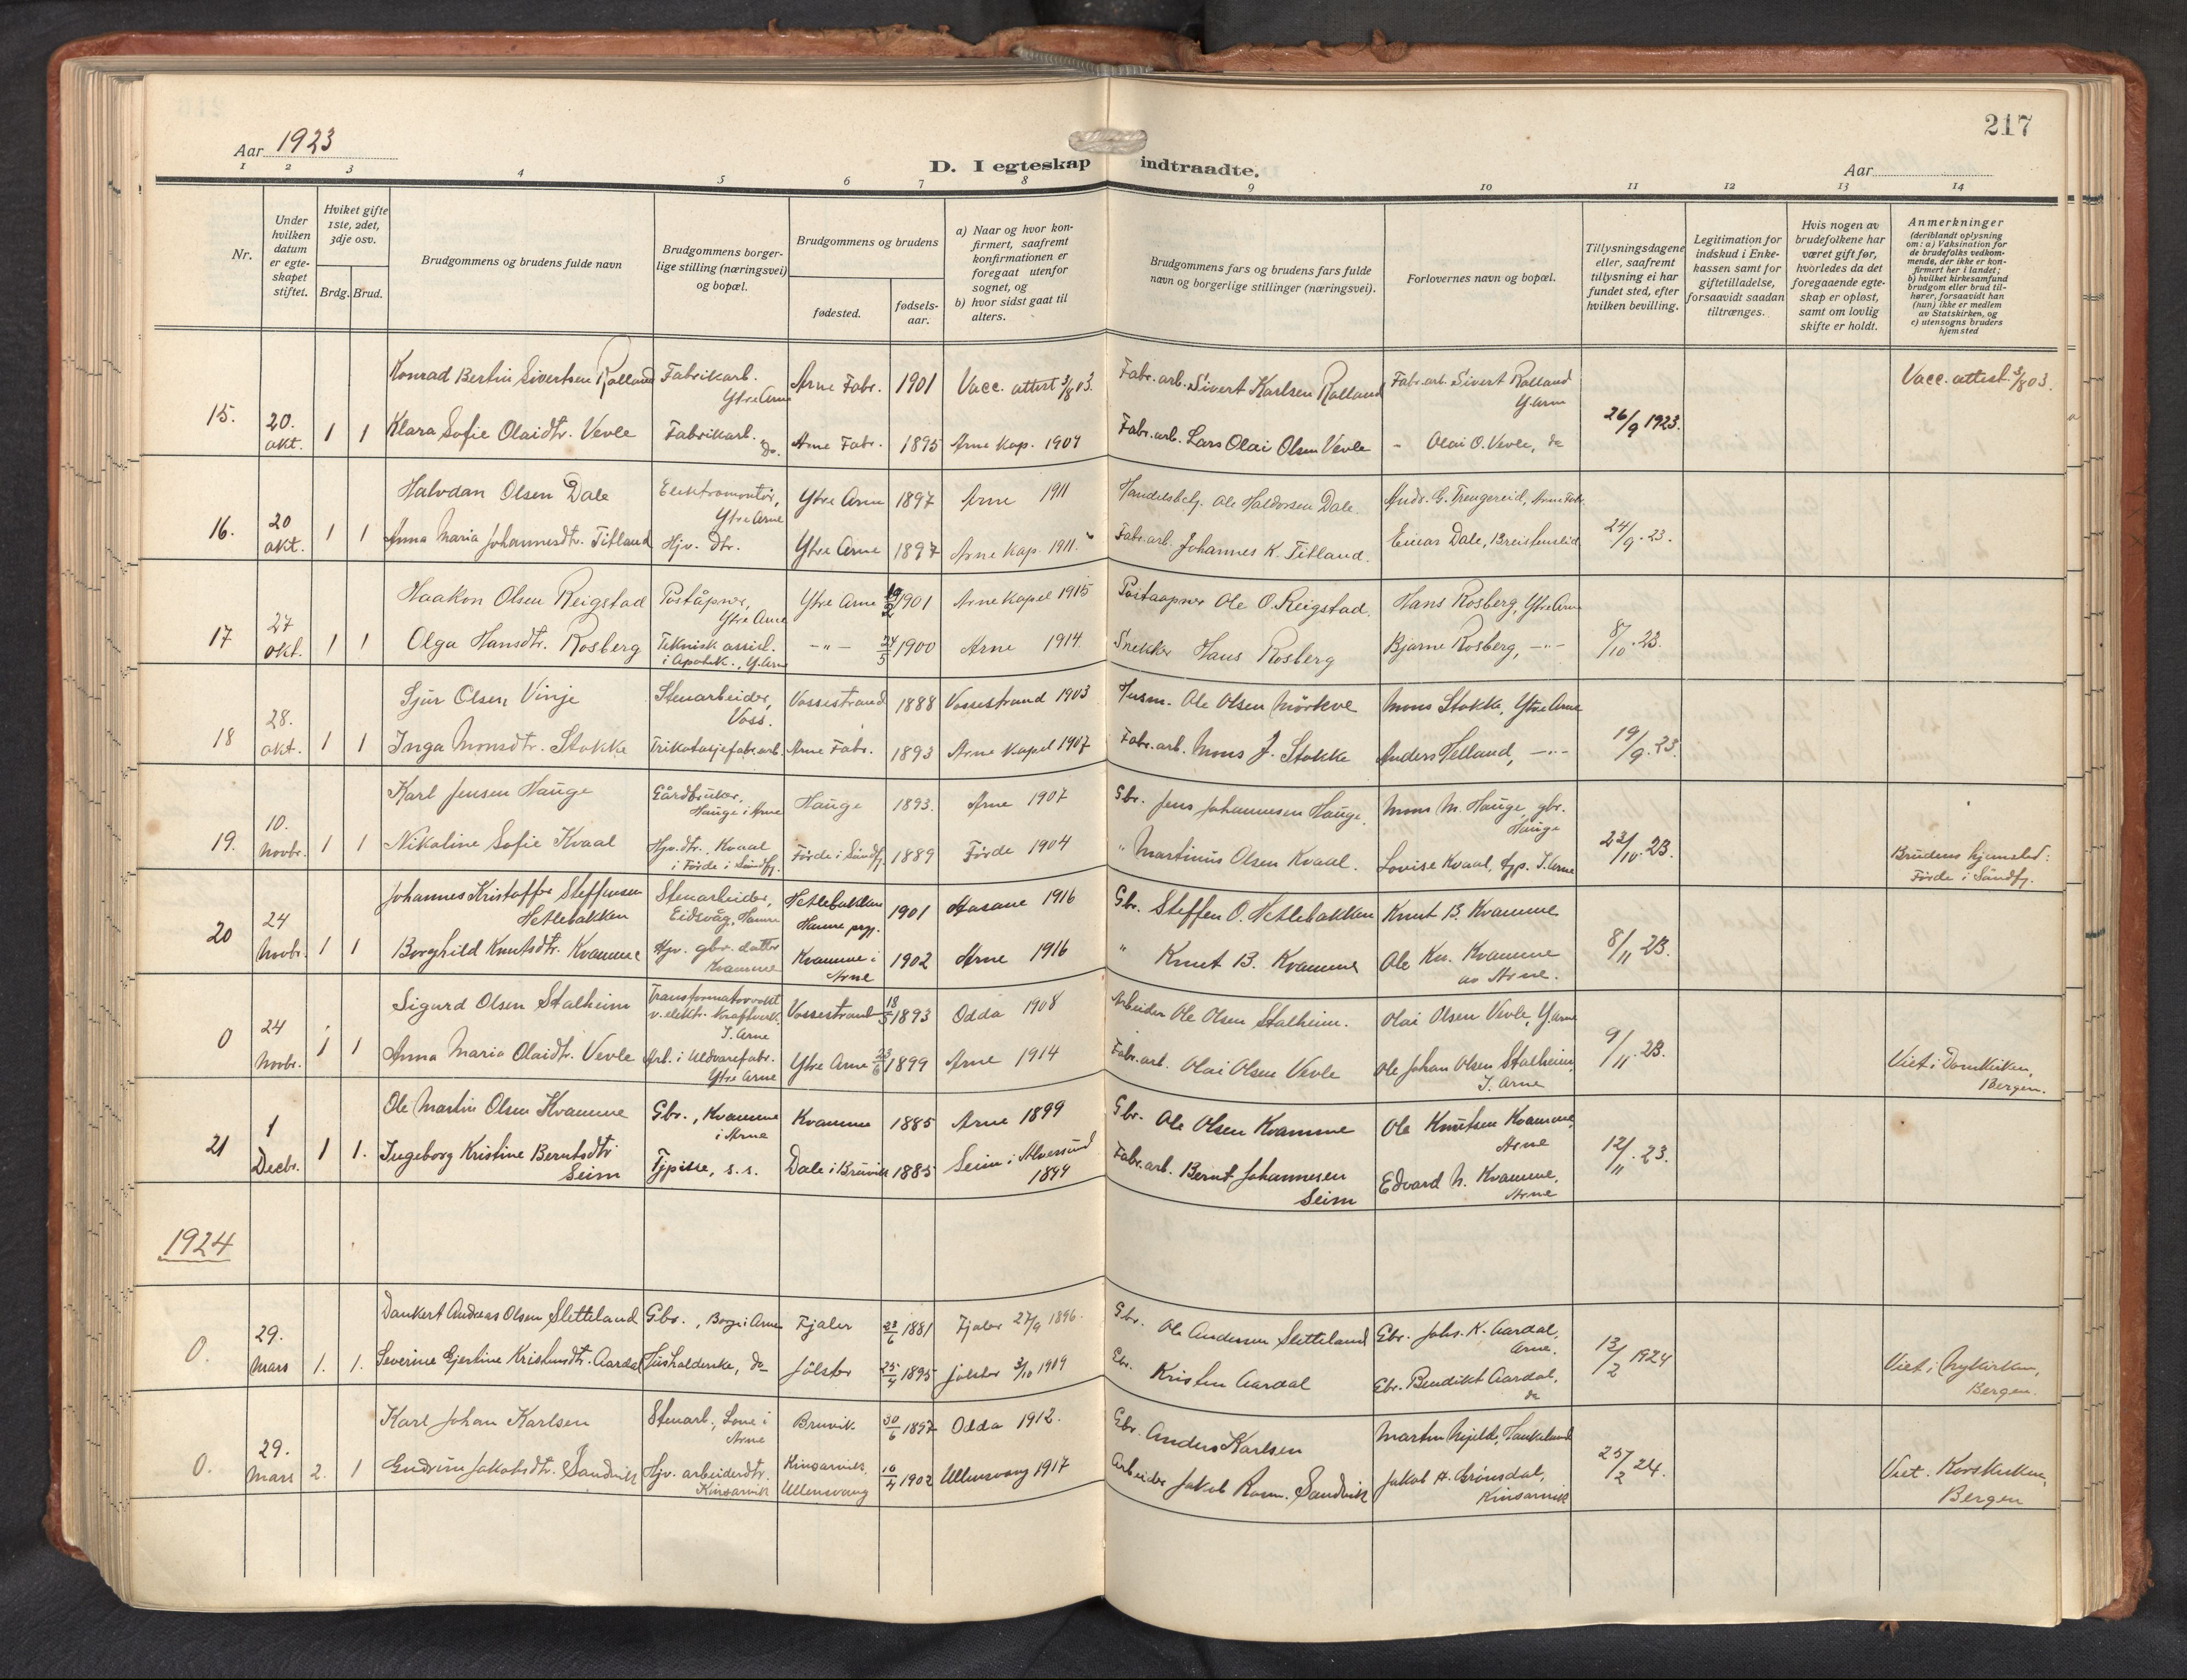 217
Aar 1923
D. I egteskap indtraadte.
Aar
1 2 3 4 5 6 7 8 9 10 11 12 13 14
Nr.
Under hvilken datum er egteskapet stiftet.
Hviket gifte 1ste, 2det, 3dje osv.
Brdg. Brud.
Brudgommens og brudens fulde navn
Brudgommens borgerlige stilling (næringsvei) og bopæl.
Brudgommens og brudens
fødested.
fødselsaar.
a) Naar og hvor konfirmert, saafremt konfirmationen er foregaat utenfor sognet, og
b) hvor sidst gaat til alters.
Brudgommens fars og brudens fars fulde navn og borgerlige stillinger (næringsvei).
Forlovernes navn og bopæl.
Tillysningsdagene eller, saafremt tillysning ei har fundet sted, efter hvilken bevilling.
Legitimation for indskud i Enkekassen samt for giftetilladelse, forsaavidt saadan tiltrænges.
Hvis nogen av brudefolkene har været gift før, hvorledes da det foregaaende egteskap er opløst, samt om lovlig skifte er holdt.
Anmerkninger
(deriblandt oplysning om: a) Vaksination for de brudefolks vedkommende, der ikke er konfirmert her i landet; b) hvilket kirkesamfund brudgom eller brud tilhører, forsaavidt han (hun) ikke er medlem av Statskirken, og c) utensogns bruders hjemsted
Konrad Bertin Sivertsen Rolland Fabrikarb. Ytre Arne Arne Fabr. 1901 Vacc. attest 3/8 03. Fabr.arb. Sivert Karlsen Rolland Fabr.arb. Sivert Rolland Y. Arne Vacc. attest. 3/8 03.
15. 20. okt. 1 1 Klara Sofie Olaidtr. Vevle Fabrikarb. do. Arne Fabr. 1895 Arne Kap. 1909 Fabr.arb. Lars Olai Olsen Vevle - Olai O. Vevle, do 26/9 1923.
Halvdan Olsen Dale Elektromontør, Ytre Arne Ytre Arne 1897 Arne 1911 Handelsbetj. Ole Haldorsen Dale. Andr. G. Trengereid, Arne Fabr.
16. 20 okt. 1 1 Anna Maria Johannesdtr. Titland Hjv. dtr. Ytre Arne 1897 Arne Kap. 1911. Fabr.arb. Johannes K. Titland. Einar Dale, Breistenslid 24/9. 23.
Haakon Olsen Reigstad Poståpner, Ytre Arne Ytre Arne 19/2 1901 Arne Kapel 1915 Postaapner Ole O. Reigstad. Hans Rosberg, Ytre Arne
17 27 okt. 1 1 Olga Hansdtr. Rosberg Teknisk assist. i Apotek., Y. Arne -"- 24/5 1900 Arne 1914. Snekker Hans Rosberg Bjarne Rosberg, -"- 8/10. 23.
Sjur Olsen Vinje Stenarbeider, Voss. Vossestrand 1888 Vossestrand 1903 Husm. Ole Olsen Mörkve Mons Stokke, Ytre Arne
18 28. okt. 1 1 Inga Monsdtr. Stokke Trikotasjefabr.arb. Arne Fabr. 1893 Arne Kapel 1907 Fabr.arb. Mons J. Stokke Anders Helland, -"- 19/9. 23
Karl Jensen Hauge Gårdbruker, Hauge i Arne Hauge 1893. Arne 1907 Gbr. Jens Johannesen Hauge. Mons M. Hauge, gbr. Hauge
19. 10. Novbr. 1 1 Nikoline Sofie Kvaal Hjv. dtr. Kvaal i Førde i Sundfj. Førde i Sundfj. 1889 Førde 1904 " Martinus Olsen Kvaal. Lovise Kvaal, I. Arne 23/10. 23. Brudens hjemsted: Førde i Sundfj.
Johannes Kristoffer Steffensen Hetlebakken Stenarbeider, Eidsvåg, Hamre Hetlebakken Hamre prgj. 1901 Aasane 1916 Gbr. Steffen O. Hetlebakken Knut B. Kvamme
20 24 Novbr. 1 1 Borghild Knutsdtr. Kvamme Hjv. gbr. datter Kvamme Kvamme i Arne 1902 Arne 1916 " Knut B. Kvamme Ole Kn. Kvamme av Arne. 8/11 23.
Sigurd Olsen Stalheim Transformatorvakt v. elektr. Kraftverk. I. Arne Vossestrand 18/5 1893 Odda 1908 Arbeider Ole Olsen Stalheim. Olai Olsen Vevle, Y. Arne
0 24 Novbr. 1 1 Anna Maria Olaidtr. Vevle Arb. i Uldvarefabr. Ytre Arne Ytre Arne 23/6 1899 Arne 1914 Fabr.arb. Olai Olsen Vevle Ole Johan Olsen Stalheim, I. Arne 9/11. 23. Viet i Domkirken, Bergen.
Ole Martin Olsen Kvamme Gbr., Kvamme i Arne Kvamme 1885 Arne 1899 Gbr. Ole Olsen Kvamme Ole Knutsen Kvamme, Arne
21 1 Decbr. 1 1. Ingeborg Kristine Berntsdtr Seim Tjpike, s. s. Dale i Bruvik 1885 Seim i Alversund 1899 Fabr.arb. Bernt Johannesen Seim Edvard N. Kvamme, Arne 12/11. 23.
1924
Dankert Andreas Olsen Sletteland Gbr., Borge i Arne Fjaler 23/6 1881 Fjaler 27/9 1896. Gbr. Ole Andersen Sletteland Gbr. Johs. K. Aardal, Arne.
0. 29. Mars 1. 1. Severine Gjertine Kristensdtr. Aardal Husholderske, do Jølster 25/4 1895 Jølster 3/10 1909 Gbr. Kristen Aardal Gbr. Bendikt Aardal, do 13/2 1924 Viet i Nykirken, Bergen.
Karl Johan Karlsen Stenarb., Lone i Arne Bruvik 30/6 1897 Odda 1912. Gbr. Anders Karlsen Martin Mjelde, Haukeland
0. 29. Mars 2. 1 Gudrun Jakobsdtr. Sandvik Hjv. arbeiderdtr. Kinsarvik Kinsarvik, Ullensvang 16/4 1902 Ullensvang 1917 Arbeider Jakob Rasm. Sandvik Jakob A. Grønsdal, Kinsarvik 25/2 24. Viet. Korskirken, Bergen